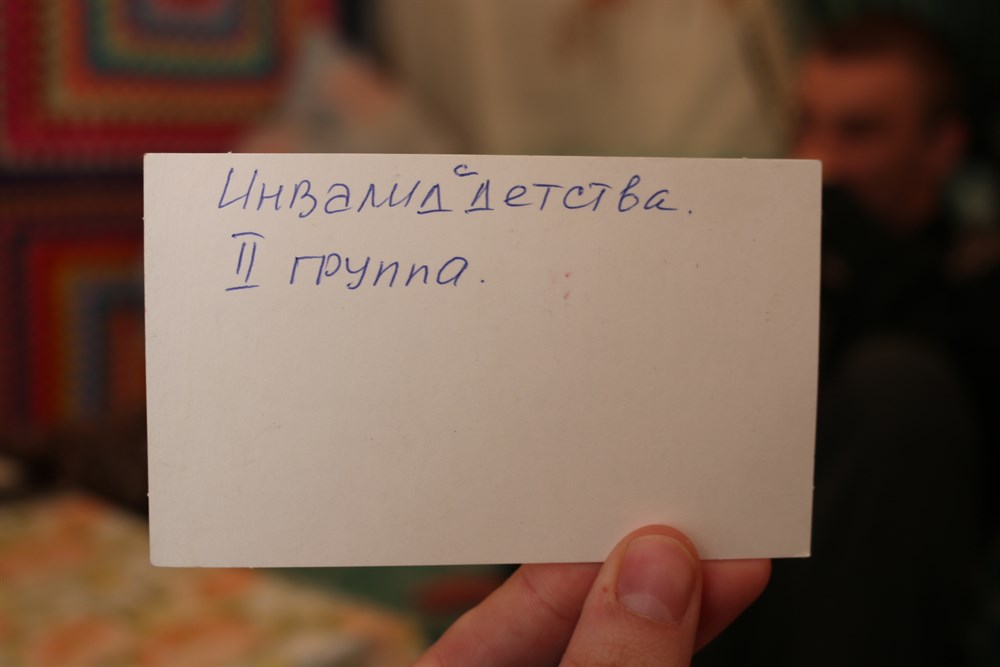 Инвалид с детства.
II группа.